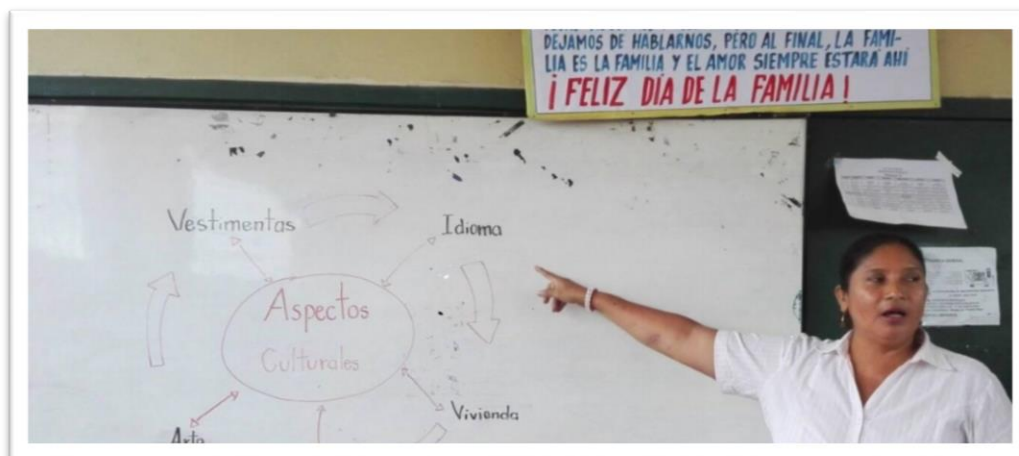 DEJAMOS DE HABLARNOS, PERO AL FINAL, LA FAMI-
LIA ES LA FAMILIA Y EL AMOR SIEMPRE ESTARÁ AHÍ
¡ FELIZ DÍA DE LA FAMILIA !
Vestimentas
Idioma
Aspectos
Culturales
Vivienda
Arte